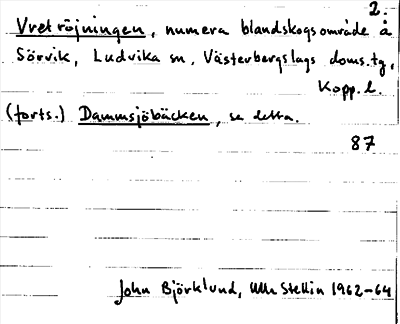 2.
Vretröjningen, numera blandskogsområde å
Sörvik, Ludvika sn, Västerbergslags doms.tg,
Kopp. l.
(forts.) Dammsjöbäcken, se detta.
87
John Björklund, Ulla Stellin 1962-64